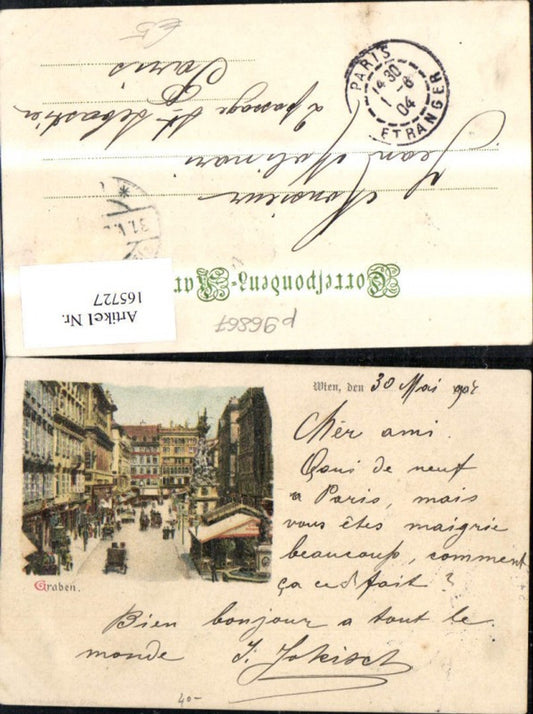 65
PARIS
14 30
1 -6
04
ETRANGER
Monsieur
Jean Molinari
2 passage St Sébastien
Paris
31.V.
Correspondenz-Kar
Artikel Nr.
165727
p96867
Wien, den 30 Mai 904
Chèr ami.
Quoi de neuf
a Paris, mais
vous êtes maigrie
beaucoup, comment
ça ce fait ?
Graben.
Bien bonjour a tout le
monde J. Jokisch
40-